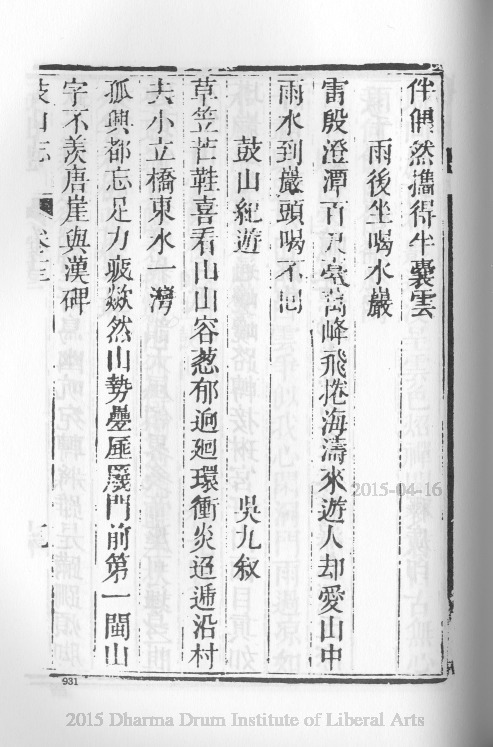 伴偶然攜得半囊雲
雨後坐喝水巖
雷殷澄潭百尺臺萬峰飛捲海濤來遊人却愛山中
雨水到巖頭喝不回
鼓山紀遊 吳九敘
草笠芒鞋喜看山山容葱郁逈廻環衝炎迢遞沿村
去小立橋東水一灣
孤興都忘足力疲歘然山勢疊厜㕒門前第一閩山
字不羨唐崖與漢碑
鼓山志 卷十三
931
2015-04-16
2015 Dharma Drum Institute of Liberal Arts